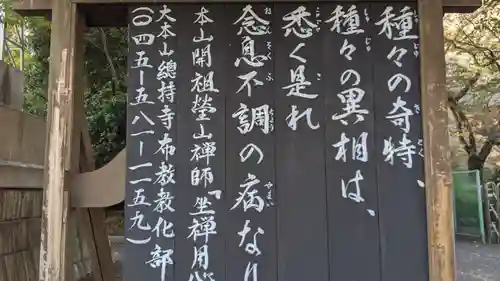 種々の奇特、
種々の異相は、
悉く是れ
念息不調の病なり
本山開祖瑩山禅師「坐禅用心
大本山總持寺布教教化部
(〇四五-五八一-一二五九)